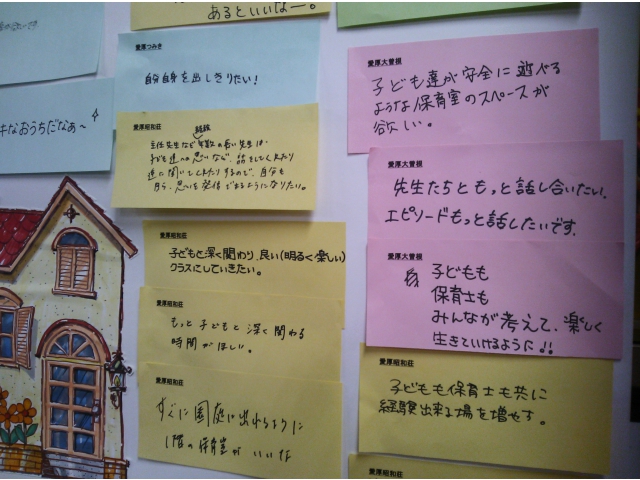 あるといいなー。
キなおうちだなあ〜
愛厚つみき
自分自身を出しきりたい!
愛厚昭和荘
経験
主任先生など年数の長い先生は、
子ども達への思いなど、話をしてくれたり
逆に聞いてくれたりするので、自分も
もう少し思いを発信できるようになりたい。
愛厚昭和荘
子どもと深く関わり、良い(明るく楽しい)
クラスにしていきたい。
愛厚昭和荘
もっと子どもと深く関わる
時間がほしい。
愛厚昭和荘
すぐに園庭に出れるように
1階の保育室がいいな
愛厚大曽根
子ども達が安全に遊べる
ような保育室のスペースが
欲しい。
愛厚大曽根
先生たちともっと話し合いたい。
エピソードもっと話したいです。
愛厚大曽根
子どもも
保育士も
みんなが考えて、楽しく
生きていけるように!!
愛厚昭和荘
子どもも保育士も共に
経験出来る場を増やす。
愛厚昭和荘